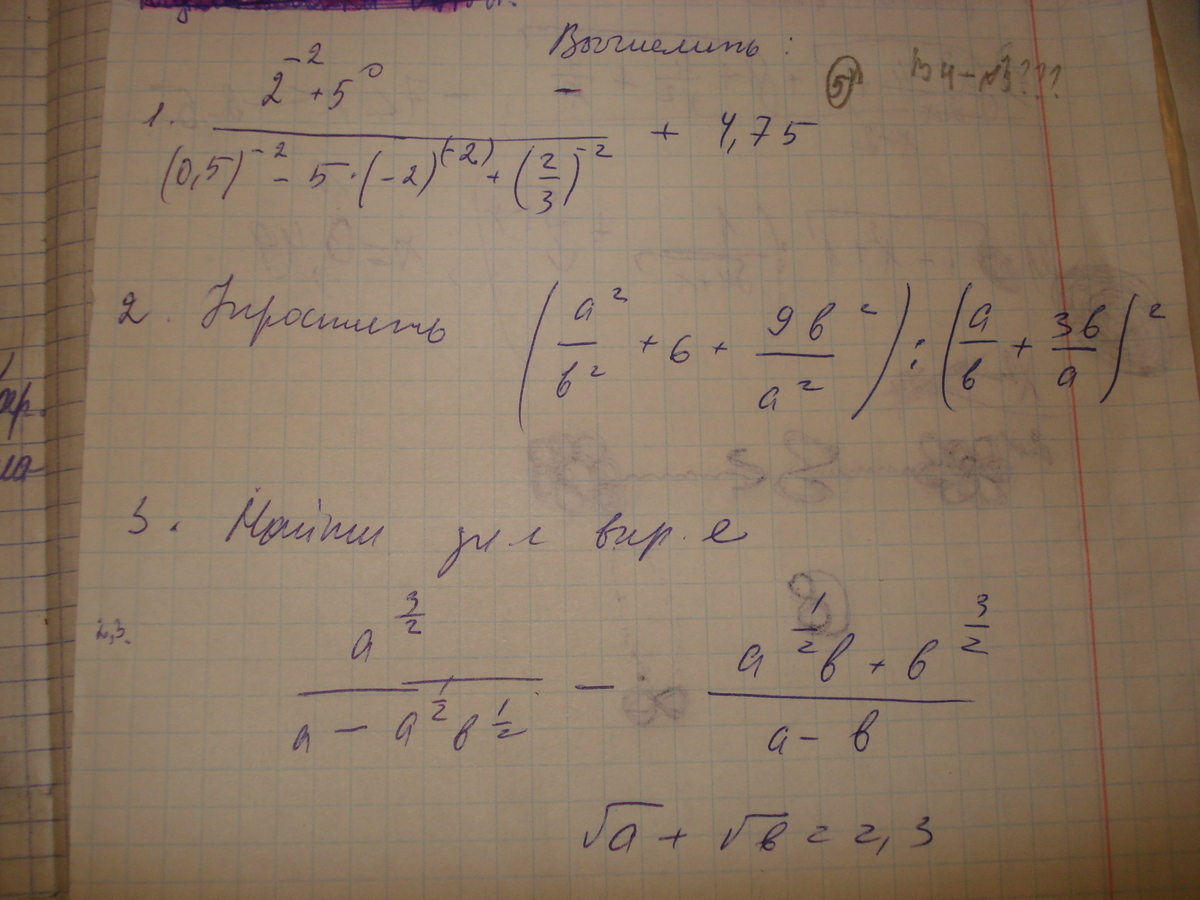 Вычислить:
1. \frac{2^{-2} + 5^0}{(0,5)^{-2} - 5 \cdot (-2)^{(-2)} + (\frac{2}{3})^{-2}} + 4,75
⑤
2. Упростить (\frac{a^2}{b^2} + 6 + \frac{9b^2}{a^2}) : (\frac{a}{b} + \frac{3b}{a})^2
3. Найти
2,3. \frac{a^{\frac{3}{2}}}{a - a^{\frac{1}{2}} b^{\frac{1}{2}}} - \frac{a^{\frac{1}{2}} b + b^{\frac{3}{2}}}{a - b}
\sqrt{a} + \sqrt{b} = 2,3